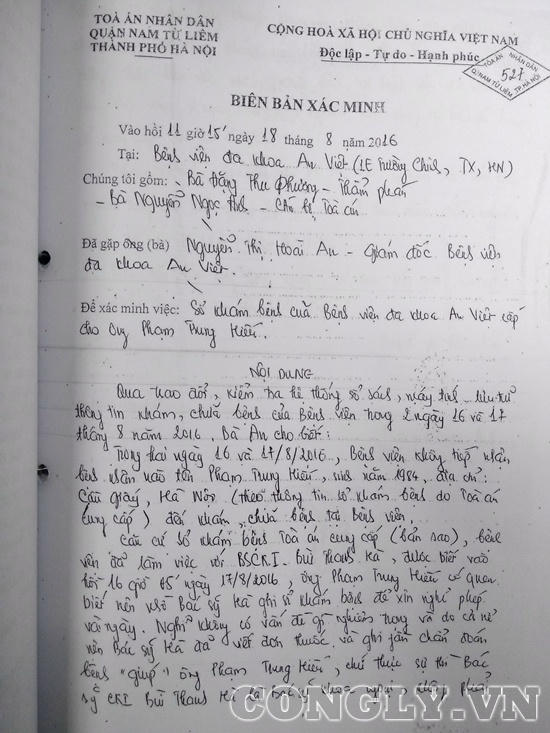 TOÀ ÁN NHÂN DÂN
QUẬN NAM TỪ LIÊM
THÀNH PHỐ HÀ NỘI
CỘNG HOÀ XÃ HỘI CHỦ NGHĨA VIỆT NAM
Độc lập - Tự do - Hạnh phúc
TÒA ÁN NHÂN DÂN
527
Q. NAM TỪ LIÊM TP. HÀ NỘI
BIÊN BẢN XÁC MINH
Vào hồi 11 giờ 15' ngày 18 tháng 8 năm 2016
Tại: Bệnh viện đa khoa An Việt (1E Trường Chinh, TX, HN)
Chúng tôi gồm: Bà Đặng Thu Phương - Thẩm phán
- Bà Nguyễn Ngọc - Cán bộ Toà án
Đã gặp ông (bà) Nguyễn Thị Hoài An - Giám đốc Bệnh viện
đa khoa An Việt.
Để xác minh việc: Sổ khám bệnh của Bệnh viện đa khoa An Việt cấp
cho ông Phạm Trung Hiếu.
NỘI DUNG
Qua trao đổi, kiểm tra hệ thống sổ sách, máy tính lưu trữ
thông tin khám, chữa bệnh của Bệnh viện trong 2 ngày 16 và 17
tháng 8 năm 2016. Bà An cho biết:
Trong hai ngày 16 và 17/8/2016, Bệnh viện không tiếp nhận
bệnh nhân nào tên Phạm Trung Hiếu, sinh năm 1984, địa chỉ:
Cầu Giấy, Hà Nội (theo thông tin sổ khám bệnh do Toà án
cung cấp) đến khám, chữa bệnh tại Bệnh viện.
Căn cứ sổ khám bệnh Toà án cung cấp (bản sao), bệnh
viện đã làm việc với BSCKI. Bùi Thanh Hà, được biết vào
hồi 16 giờ 05' ngày 17/8/2016, ông Phạm Trung Hiếu có quen
biết nên nhờ Bác sỹ Hà ghi sổ khám bệnh để xin nghỉ phép
vài ngày. Nghĩ không có vấn đề gì nghiêm trọng và do cả nể
nên Bác sỹ Hà đã viết đơn thuốc và ghi chẩn đoán
bệnh "giúp" ông Phạm Trung Hiếu, chứ thực sự thì Bác
sỹ CKI Bùi Thanh Hà là Bác sỹ khoa ngoại, không phải
CONGLY.VN